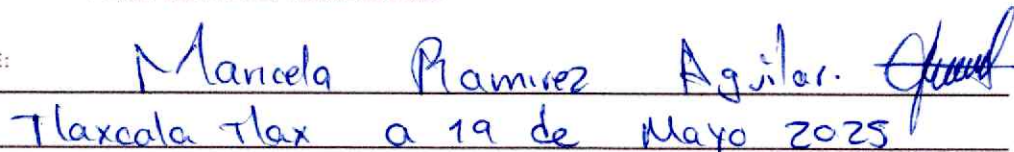 E: Maricela Ramirez Aguilar.
Tlaxcala Tlax a 19 de Mayo 2025